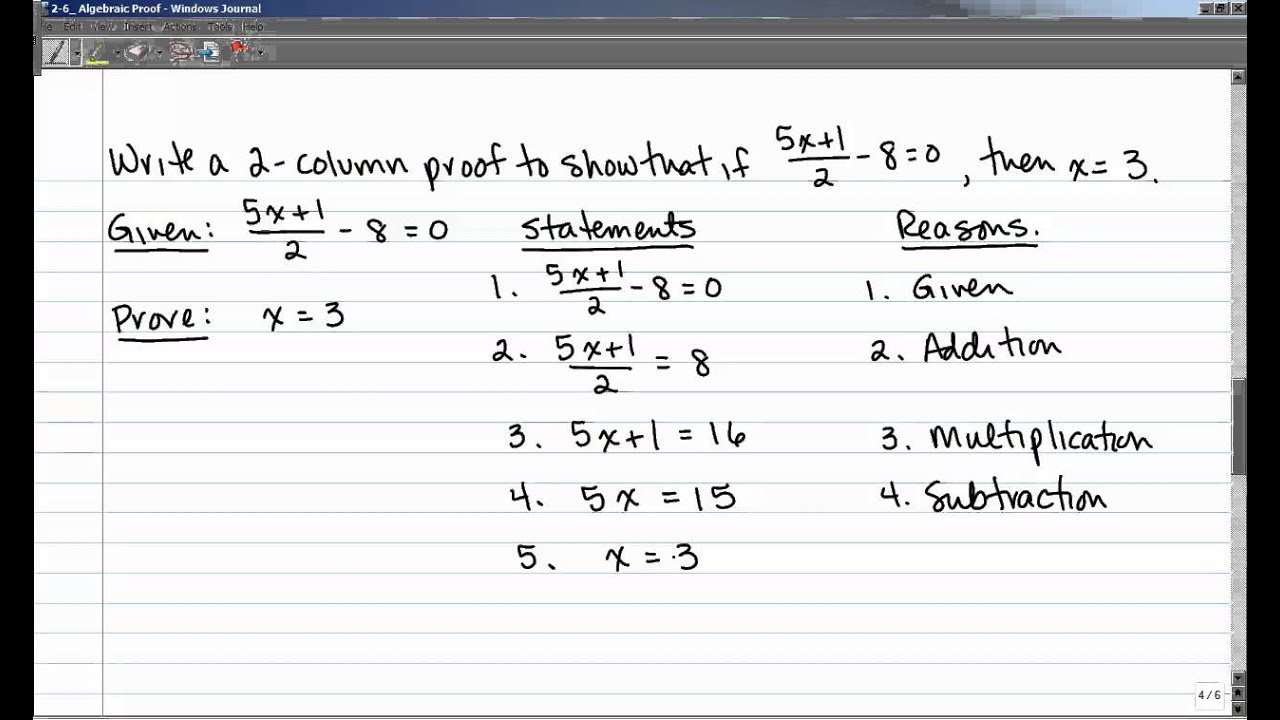 2-6_ Algebraic Proof - Windows Journal
Edit View Insert Actions Tools Help
Write a 2-column proof to show that if (5x+1)/2 - 8 = 0, then x = 3.
Given: (5x+1)/2 - 8 = 0 Statements Reasons.
1. (5x+1)/2 - 8 = 0 1. Given
Prove: x = 3
2. (5x+1)/2 = 8 2. Addition
3. 5x+1 = 16 3. Multiplication
4. 5x = 15 4. Subtraction
5. x = 3
4 / 6